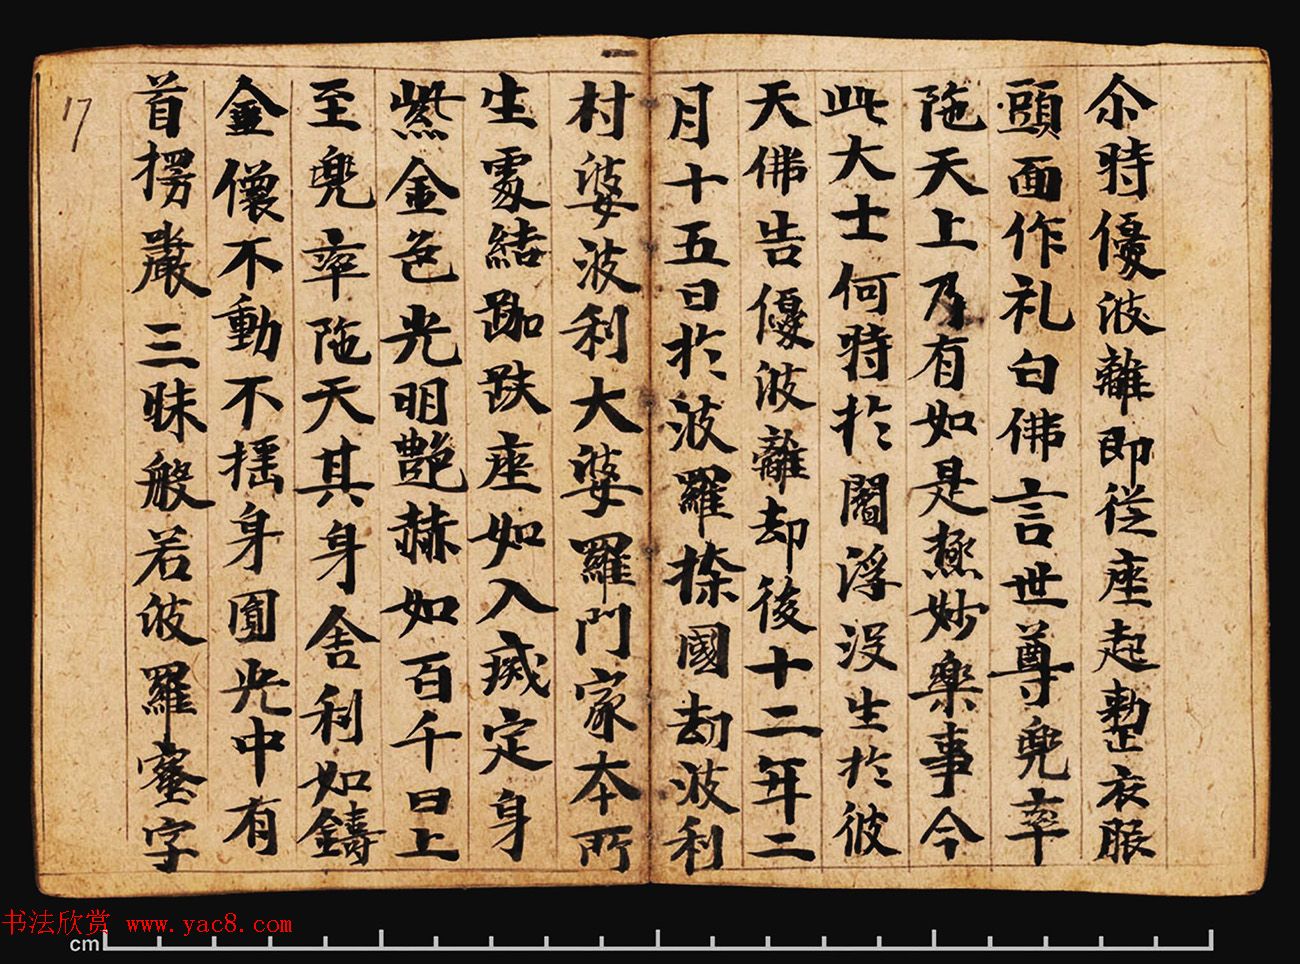 尒時優波離即從座起整衣服
頭面作礼白佛言世尊兜率
陁天上乃有如是極妙樂事今
此大士何時於閻浮沒生於彼
天佛告優波離却後十二年二
月十五日於波羅㮈國刧波利
村婆波利大婆羅門家本所
生處結跏趺座如入滅定身
紫金色光明艶赫如百千日上
至兜率陁天其身舍利如鑄
金儴不動不揺身圓光中有
首楞嚴三昧般若波羅蜜字
17
书法欣赏 www.yac8.com
cm